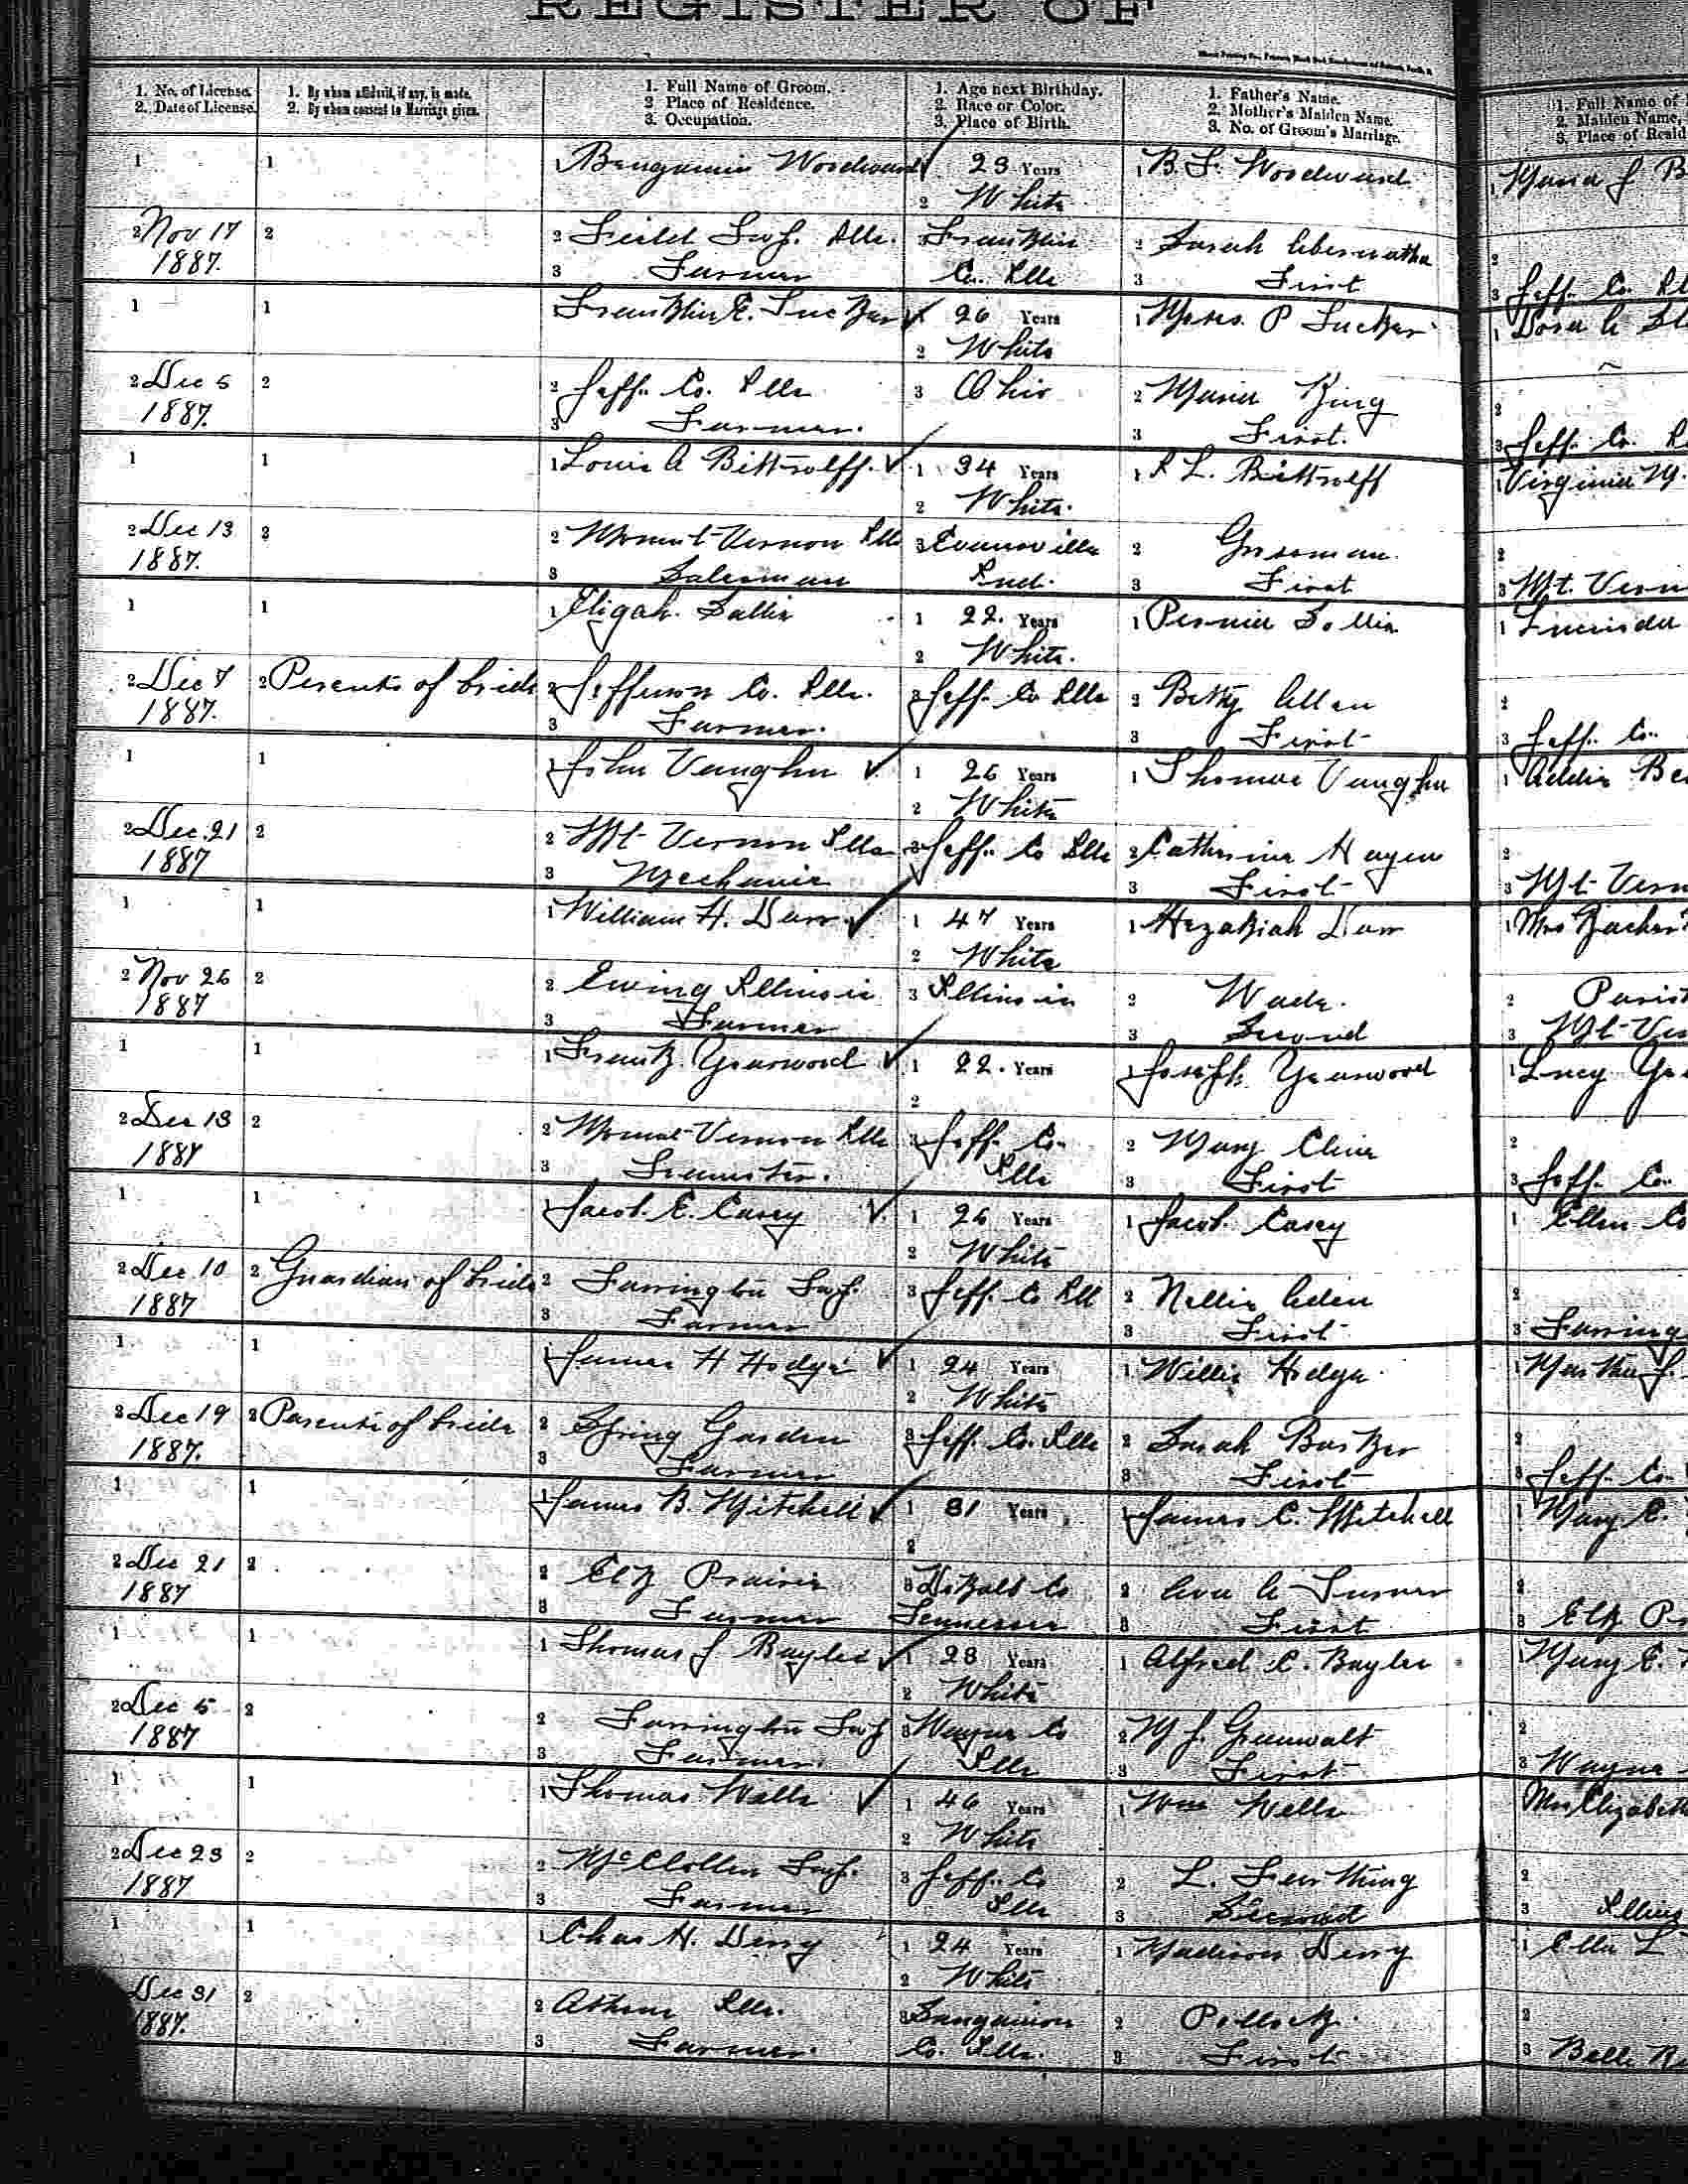 REGISTER OF
1. No. of License.
2. Date of License.
1. By whom affidavit, if any, is made.
2. By whom consent to Marriage given.
1. Full Name of Groom.
2 Place of Residence.
3. Occupation.
1. Age next Birthday.
2. Race or Color.
3. Place of Birth.
1. Father's Name.
2. Mother's Maiden Name.
3. No. of Groom's Marriage.
1. Full Name of
2. Maiden Name,
3. Place of Resid
1 1 1 Bengamin Woodward 23 Years 1 B. F. Woodward 1
2 White
2 Nov 17 2 2 Field Twp. Ills. 3 Franklin 2 Sarah 2
1887. 3 Farmer Co. Ills 3 First 3 Jeff. Co. Ill
1 1 Franklin E. Tucker 26 Years 1 Moses P Tucker 1 Dora A
2 White
2 Dec 5 2 2 Jeff. Co. Ills 3 Ohio 2 Maria King 2
1887. 3 Farmer. 3 First. 3 Jeff. Co.
1 1 1 Louis A Bittrolff. 1 34 Years 1 L. Bittrolff 1 Virginia M.
2 White.
2 Dec 13 2 2 Mount Vernon Ills 3 Evansville 2 Grossman. 2
1887. 3 Salesman Ind. 3 First 3 Mt. Vern
1 1 1 Eligah. Sallie 1 22. Years 1 1 Lucinda
2 White.
2 Dec 7 2 Perents of bride 2 Jefferson Co. Ills. 3 Jeff. Co Ills 2 Betty Allen 2
1887. 3 Farmer. 3 First 3 Jeff. Co.
1 1 1 John Vaughn 1 26 Years 1 Thomas Vaughn 1 Addie Be
2 White
2 Dec. 21 2 2 Mt Vernon Ills 3 Jeff. Co Ills 2 Catherine Hagen 2
1887 3 Mechanic 3 First 3 Mt Vern
1 1 1 William H. Darr 1 47 Years 1 Hezakiah Darr 1 Mrs
2 White
2 Nov 26 2 2 Ewing Illinois 3 Illinois 2 Wade. 2 Paris
1887 3 Farmer 3 Second 3 Mt Ver
1 1 1 Frank. Yearwood 1 22. Years 1 Joseph Yearwood 1 Lucy Ye
2
2 Dec 13 2 2 Mount Vernon Ills 3 Jeff. Co. 2 Mary Cline 2
1887 3 Teamster. Ills 3 First 3 Jeff. Co.
1 1 1 Jacob. E. Casey 1 26 Years 1 Jacob. Casey 1 Ellen Co
2 White
2 Dec 10 2 Guardian of bride 2 Farrington Twp. 3 Jeff. Co Ill 2 Nellie Aden 2
1887 3 Farmer 3 First 3 Farring
1 1 1 James H Hodge 1 24 Years 1 Willis Hodge 1 Martha J.
2 White
2 Dec 19 2 Parents of bride 2 Spring Garden 3 Jeff. Co. Ills 2 Sarah Barker 2
1887. 3 Farmer 3 First 3 Jeff. Co.
1 1 1 James B. Mitchell 1 31 Years 1 James C. Mitchell 1 Mary E.
2
2 Dec 21 2 2 Elk Prairie 3 DeKalb Co 2 Ava A Turner 2
1887 3 Farmer Tennessee 3 First 3 Elk Pr
1 1 1 Thomas J. Bayles 1 28 Years 1 Alfred C. Bayles 1 Mary E.
2 White
2 Dec 5 2 2 Farrington Twp 3 Wayne Co 2 M J. Greenwalt 2
1887 3 Farmer. Ills 3 First 3 Wayne
1 1 1 Thomas Wells 1 46 Years 1 Wm Wells Mrs Elizabeth
2 White
2 Dec 23 2 2 McClellen Twp. 3 Jeff. Co 2 2
1887 3 Farmer Ills 3 Second 3 Illino
1 1 1 Chas H. Derry 1 24 Years 1 Madison Derry 1 Ella L
2 White
Dec 31 2 2 Athens Ills. 3 Sangamon 2 Pollock. 2
1887. 3 Farmer. Co. Ills. 3 First 3 Belle R